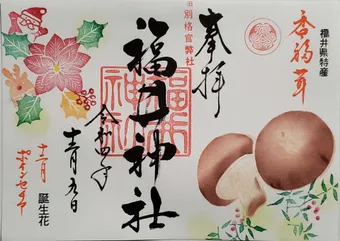 福井県特産
香福茸
奉拝
旧別格官弊社
福井神社
福井神社
令和四年
十二月九日
十二月 誕生花
ポインセチア